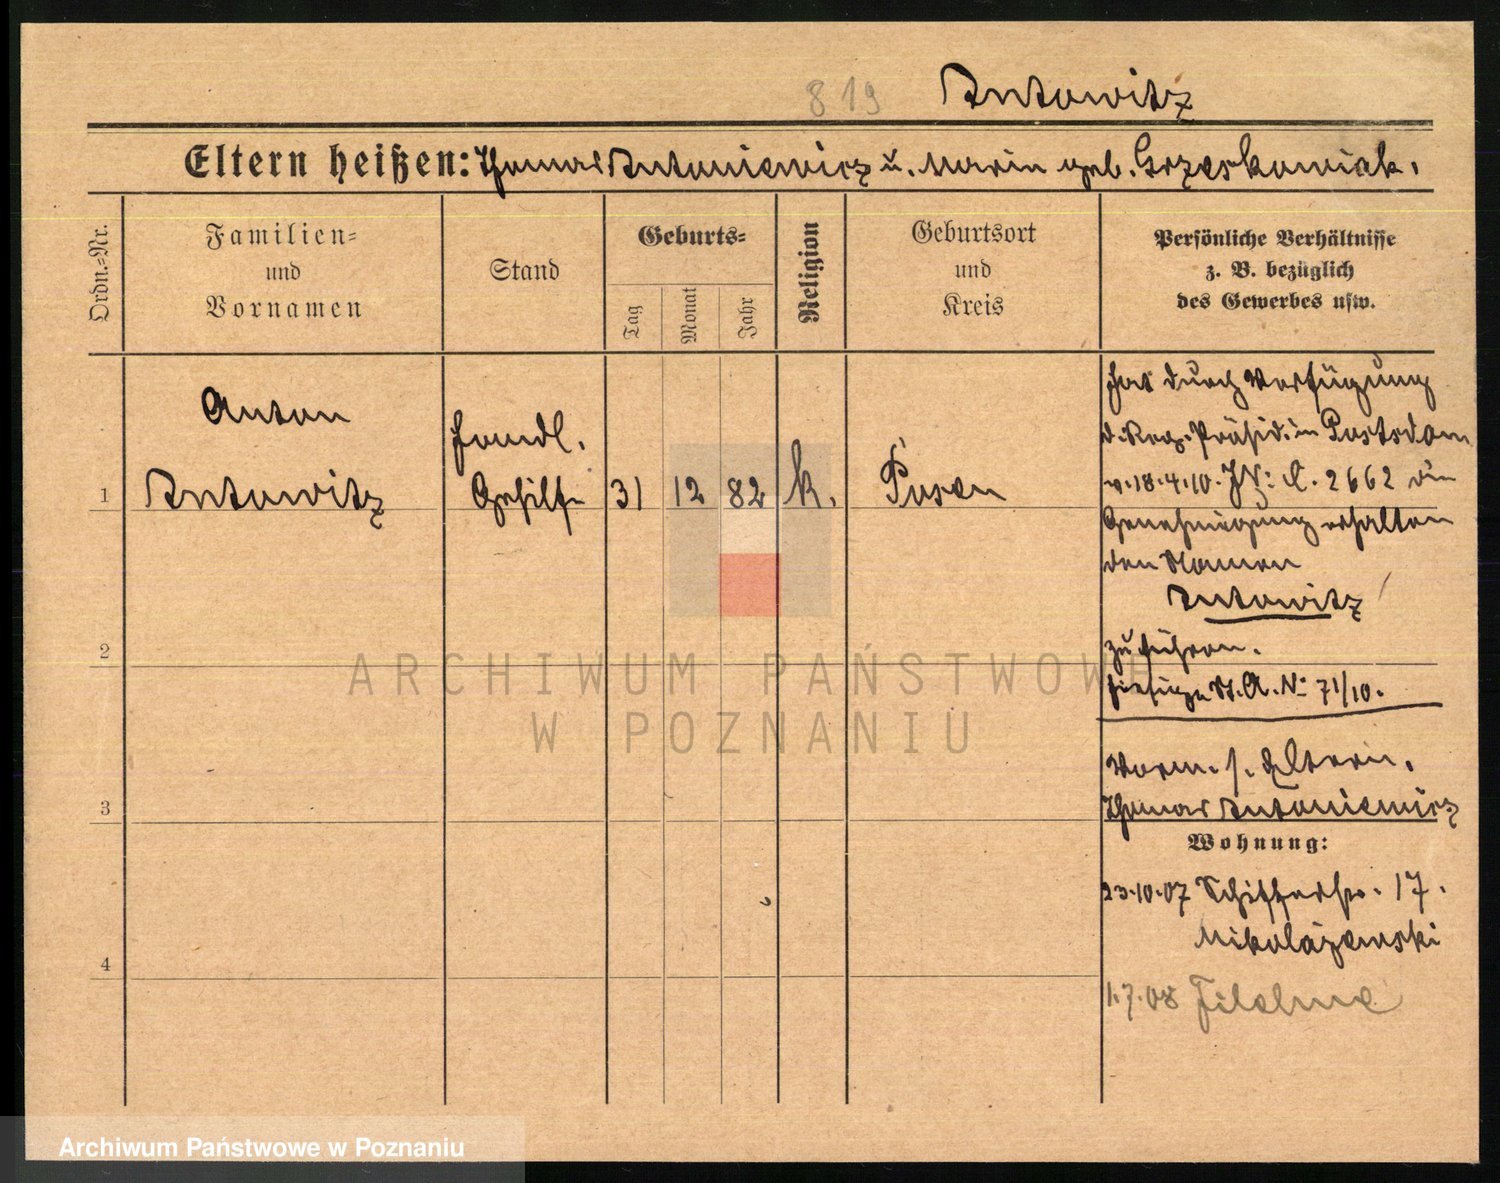 819 Antowitz
Eltern heißen: Thomas Antoniewicz u. Marie geb. Grzeskowiak.
Ordn.=Nr.
Familien=
und
Vornamen
Stand
Geburts=
Tag
Monat
Jahr
Religion
Geburtsort
und
Kreis
Persönliche Verhältnisse
z. B. bezüglich
des Gewerbes usw.
1
Anton
Antowitz
Handl.
Gehilfe
31 12 82 k. Posen
hat durch Verfügung
d. Reg. Präsid. in Postsdam
v. 18.4.10. JN: C. 2662 die
Genehmigung erhalten
den Namen
Antowitz
zu führen.
hiesige St. A. No 71/10.
2
Vorm. s. Eltern.
Thomas Antoniewicz
3
Wohnung:
23.10.07 Schifferstr. 17.
Mikolajewski
4
1.7.08 Filehne
ARCHIWUM PAŃSTWOWE
W POZNANIU
Archiwum Państwowe w Poznaniu